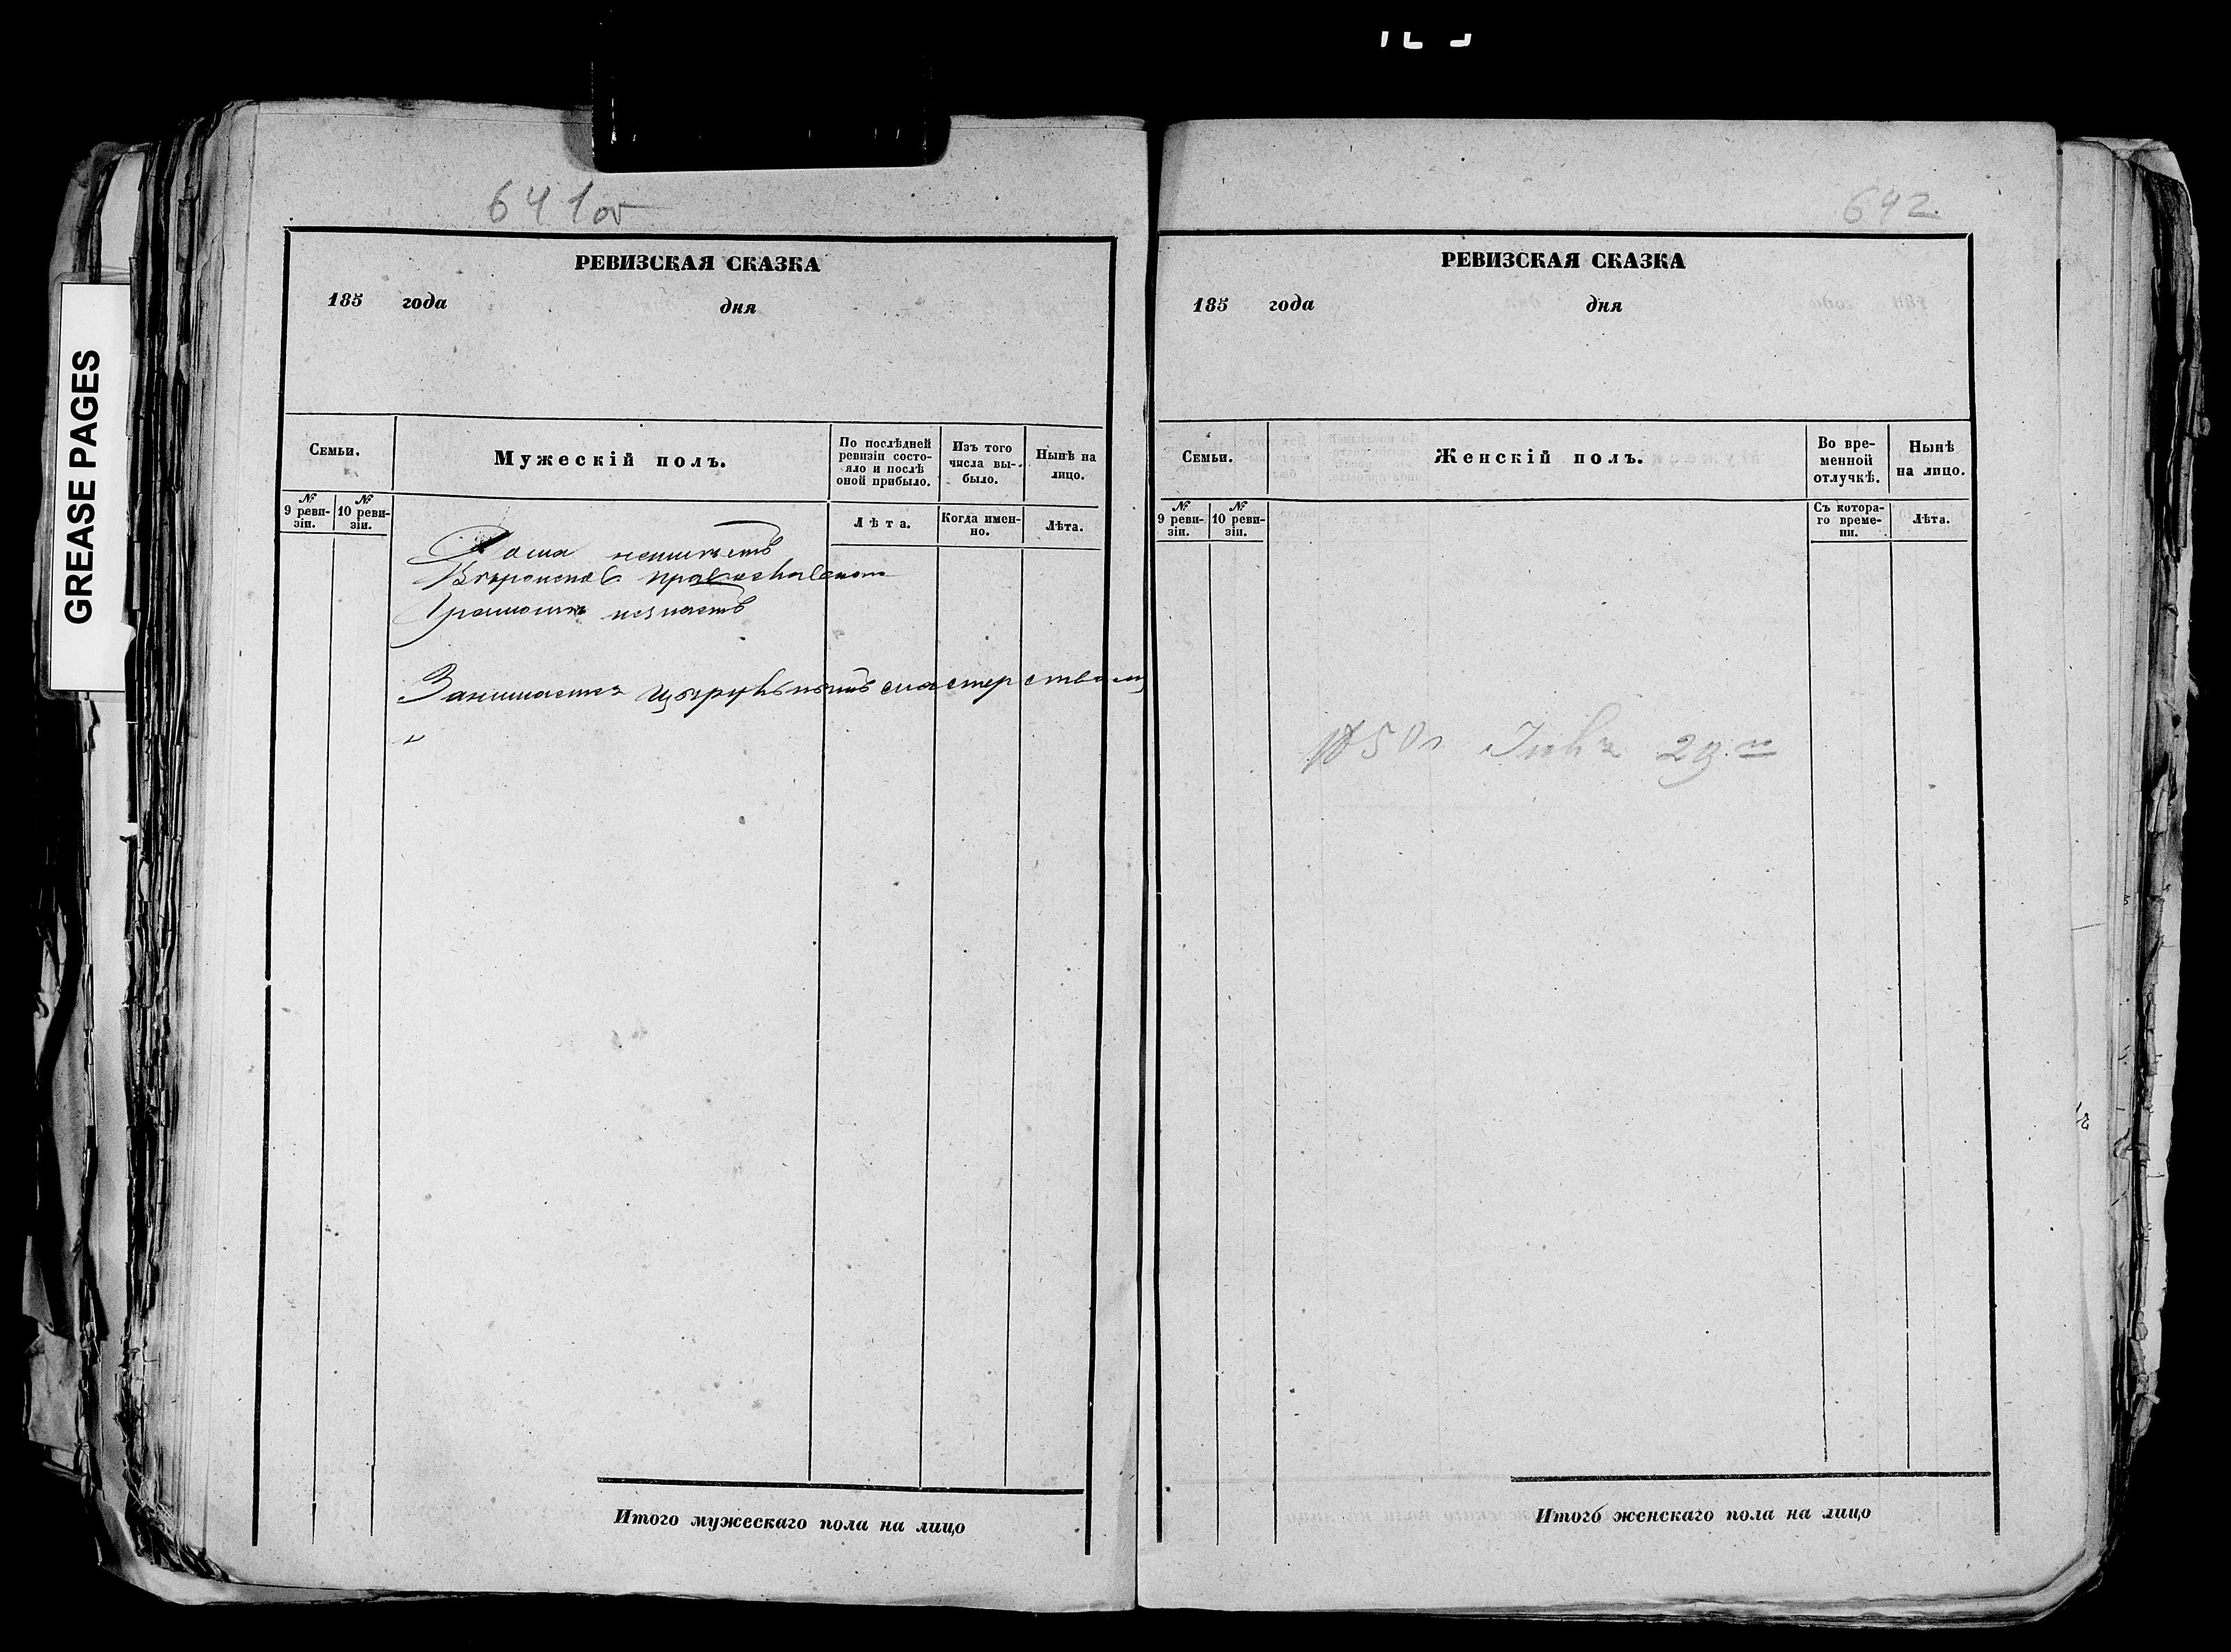 GREASE PAGES
641 об
РЕВИЗСКАЯ СКАЗКА
185 года дня
Семьи.
Мужескій полъ.
По послѣдней ревизіи состояло и послѣ оной прибыло.
Изъ того числа выбыло.
Нынѣ на лицо.
№ 9 ревизіи.
№ 10 ревизіи.
Лѣта.
Когда именно.
Лѣта.
Дома неимѣетъ
Вѣроисповѣ православнаго
Грамотѣ незнаетъ
Занимается цырульнымъ мастерствомъ
Итого мужескаго пола на лицо
642
РЕВИЗСКАЯ СКАЗКА
185 года дня
Семьи.
Женскій полъ.
Во временной отлучкѣ.
Нынѣ на лицо.
№ 9 ревизіи.
№ 10 ревизіи.
Съ котораго времени.
Лѣта.
29
Итого женскаго пола на лицо